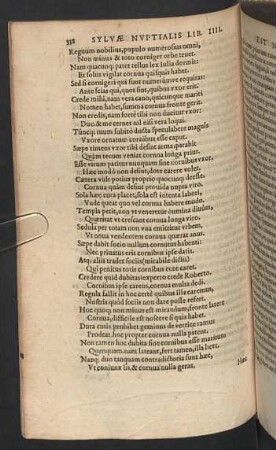 338 SYLVÆ NVPTIALIS LIB. IIII.
Regnum nobilius, populo numerosius omni,
Non minus & toto corniger orbe tenet.
Nam quacunq; patet tellus lex Iulia dormit:
Et solus vigilat cornua qui quis habet.
Sed si cornigeri qui sunt numerúmve requiras:
Ante scias qui, quot sint, quibus vxor erit.
Crede mihi, nam vera cano, quicunque mariti
Nomen habet, summa cornua fronte gerit.
Non credis, nam forté tibi non ducitur vxor:
Duc, & me cernes nil nisi vera loqui.
Túncq; tuum subitò ducta speculabere magnis
Vxore ornatum cornibus esse caput.
Sæpe timent vxor tibi desit acma
Quàm tecum veniat cornua longa prius.
Esse virum patitur nunquam sine cornibus vxor.
Hæc modò non desint, dote carere velit.
Cætera vult potius proprio quocunq; deesse.
Cornua quàm desint prouida nupta viro.
Sola hæc cura placet, sola est intenta labori,
Vnde queat quo vel cornua habere modo.
Templa petit, non vt veneretur numina diuûm,
Quæritat vt crescant cornua longa viro.
Sedula per totam non vna emittitur vrbem,
Vt noua vendentem cornua quærat anus.
Sæpe dabit socio nullum cornutus habenti:
Nec priuatus erit cornibus ipse datis.
Atq; alij trudet socijs (mirabile dictu)
Qui penitus totis cornibus ecce caret.
Credere quid dubitas? expero crede Roberto.
Cornibus ipse careno, cornua multa dedi.
Regula fallit in hoc certè quibus illa carentus,
Nostris quòd socijs non dare posse refert.
Hoc quoq; non minus est mirandum, fronte latere
Cornua, difficile est noscere si quis habet.
Dura cutis prohibet geminus de vertice ramus
Prodeat, hoc propter cornua nulla patent.
Non tamen hoc dubita sine cornibus esse maritum
Quenquam, nam lateant, fert tamen, illa licet.
Nanq; duo tanquam contradictoria sunt hæc,
Vt coniunx sis, & cornua nulla geras.
Hac